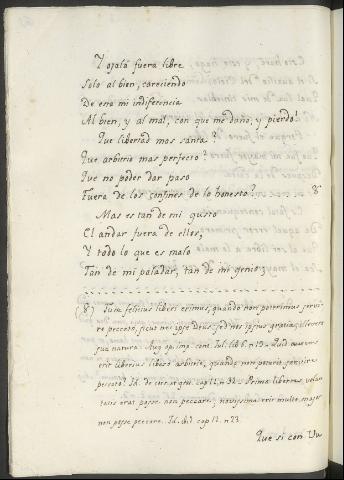 Y ojalá fuera libre
Solo al bien, careciendo
De esta mi indiferencia
Al bien, y al mal, con que me daño, y pierdo!
Que libertad mas santa?
Que arbitrio mas perfecto?
Que no poder dar paso
Fuera de los confines de lo honesto? 8
Mas es tan de mi gusto
El andar fuera de ellos,
Y todo lo que es malo
Tan de mi paladar, tan de mi genio;
(8) Tum felicius liberi erimus, quando non poterimus servi-
re peccato, sicut nec ipse Deus, sed nos ipsius gratia, ille vero
sua natura. Aug. op. imp. cont. Jul. lib. 6. n. 19.
erit liberius libero arbitrio, quando non poterit servire
peccato? Id. de corr. et grat. cap. 11. n. 32. Prima libertas volun-
tatis erat posse non peccare; novissima erit multo major
non posse peccare. Id. ibid. cap. 12. n. 33.
Que si con